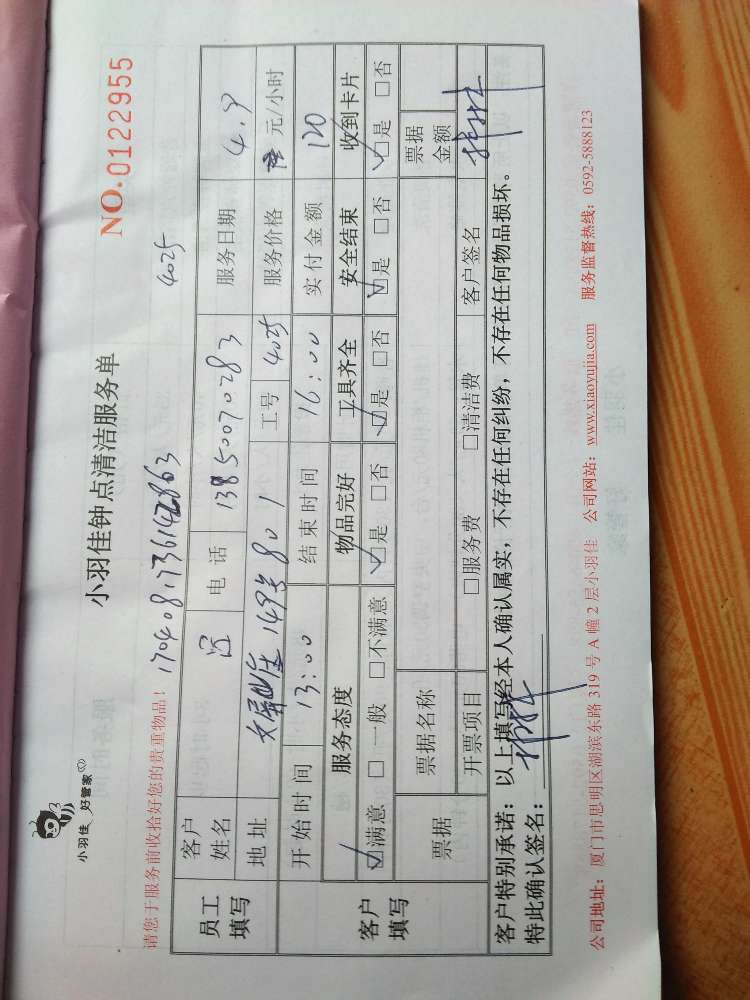 小羽佳 好管家
小羽佳钟点清洁服务单
NO.0122955
请您于服务前收拾好您的贵重物品！ 1704081736142863 4025
员工填写 客户姓名 电话 13850070283 服务日期 4.9
地址 149号801 工号 4025 服务价格 元/小时
客户填写 开始时间 13:00 结束时间 16:00 实付金额 120
服务态度 物品完好 工具齐全 安全结束 收到卡片
☑满意 □一般 □不满意 ☑是 □否 ☑是 □否 ☑是 □否 ☑是 □否
票据 票据名称 票据金额
开票项目 □服务费 □清洁费 客户签名
客户特别承诺：以上填写经本人确认属实，不存在任何纠纷，不存在任何物品损坏。
特此确认签名：
公司地址：厦门市思明区湖滨东路 319 号 A 幢 2 层小羽佳 公司网站：www.xiaoyujia.com 服务监督热线：0592-5888123